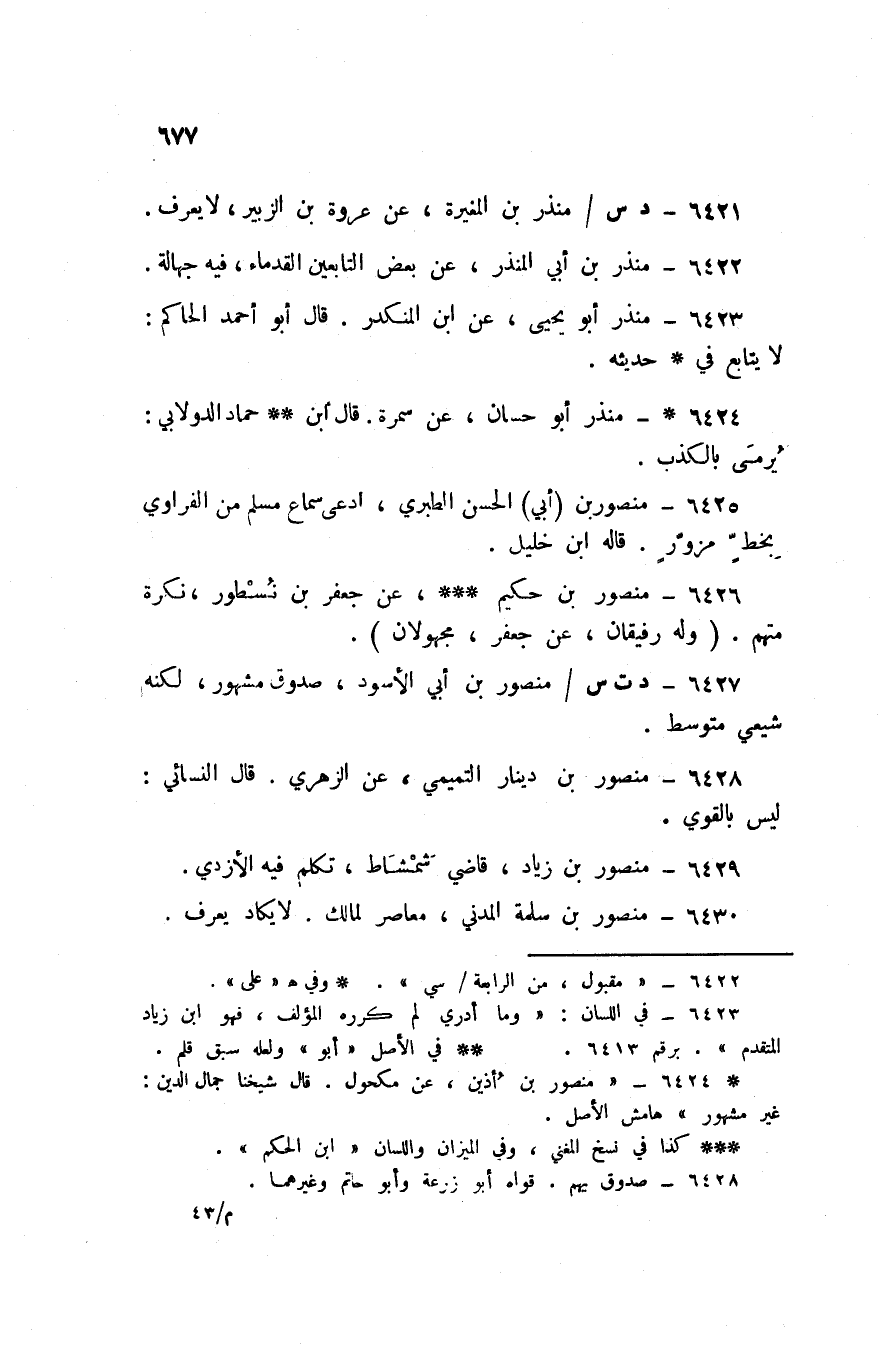 ٦٧٧
٦٤٢١ – د س / منذر بن المغيرة ، عن عروة بن الزبير ، لا يعرف .
٦٤٢٢ – منذر بن أبي المنذر ، عن بعض التابعين القدماء ، فيه جهالة .
٦٤٢٣ – منذر أبو يحيى ، عن ابن المنكدر . قال أبو أحمد الحاكم :
لا يتابع في * حديثه .
٦٤٢٤ * – منذر أبو حسان ، عن سمرة . قال ابن ** حماد الدولابي :
يُرمَى بالكذب .
٦٤٢٥ – منصور بن (أبي) الحسن الطبري ، ادعى سماع مسلم من الفراوي
بِخطٍّ مزوَّرٍ . قاله ابن خليل .
٦٤٢٦ – منصور بن حكيم *** ، عن جعفر بن نُسْطور ، نكرة
متهم . ( وله رفيقان ، عن جعفر ، مجهولان ) .
٦٤٢٧ – د ت س / منصور بن أبي الأسود ، صدوق مشهور ، لكنه
شيعي متوسط .
٦٤٢٨ – منصور بن دينار التميمي ، عن الزهري . قال النسائي :
ليس بالقوي .
٦٤٢٩ – منصور بن زياد ، قاضي شَمْشَاط ، تكلم فيه الأزدي .
٦٤٣٠ – منصور بن سلمة المدني ، معاصر لمالك . لا يكاد يعرف .
٦٤٢٢ – « مقبول ، من الرابعة / سي » . * وفي ه « على » .
٦٤٢٣ – في اللسان : « وما أدري لم كرره المؤلف ، فهو ابن زياد
المتقدم » . برقم ٦٤١٣ . ** في الأصل « أبو » ولعله سبق قلم .
* ٦٤٢٤ – « منصور بن أُذين ، عن مكحول . قال شيخنا جمال الدين :
غير مشهور » هامش الأصل .
*** كذا في نسخ المغني ، وفي الميزان واللسان « ابن الحكم » .
٦٤٢٨ – صدوق يهم . قواه أبو زرعة وأبو حاتم وغيرهما .
م/٤٣